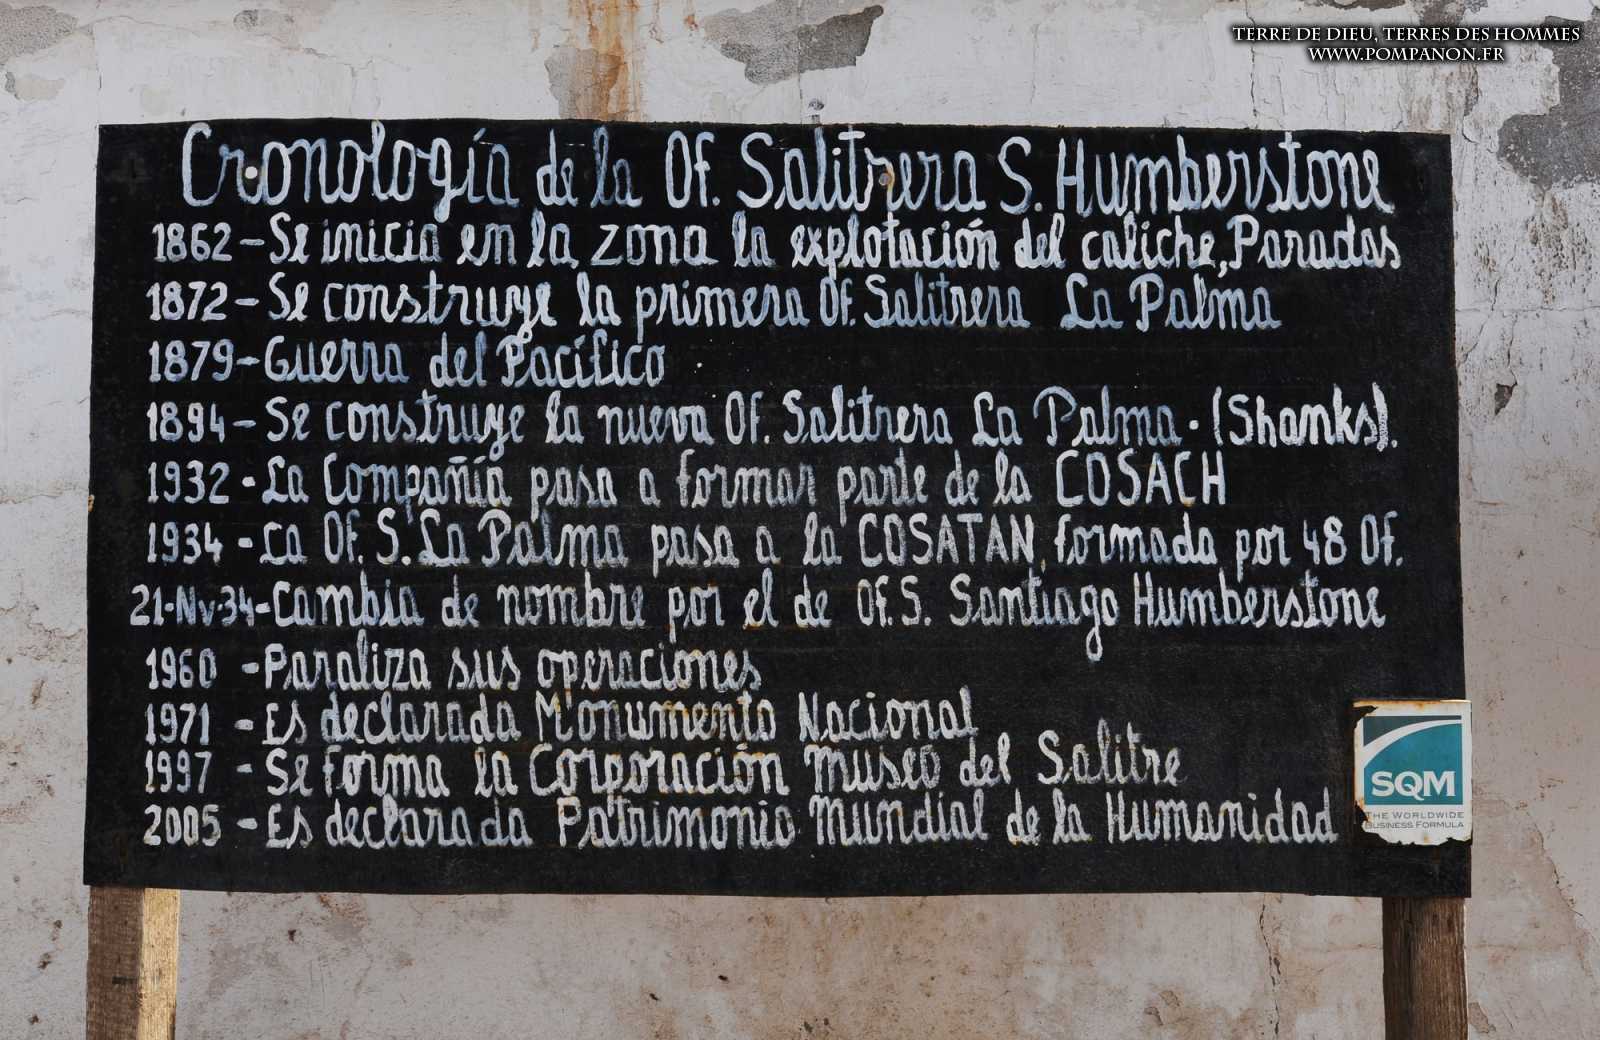 TERRE DE DIEU, TERRES DES HOMMES
WWW.POMPANON.FR
Cronología de la Of. Salitrera S. Humberstone
1862-Se inicia en la zona la explotación del caliche, Paradas
1872-Se construye la primera Of. Salitrera La Palma
1879-Guerra del Pacífico
1894-Se construye la nueva Of. Salitrera La Palma-(Shanks).
1932-La Compañía pasa a formar parte de la COSACH
1934-La Of. S. La Palma pasa a la COSATAN, formada por 48 Of.
21-Nv-34-Cambia de nombre por el de Of. S. Santiago Humberstone
1960 -Paraliza sus operaciones
1971 -Es declarada Monumento Nacional
1997 -Se forma la Corporación Museo del Salitre
2005 -Es declarada Patrimonio Mundial de la Humanidad
SQM
THE WORLDWIDE
BUSINESS FORMULA